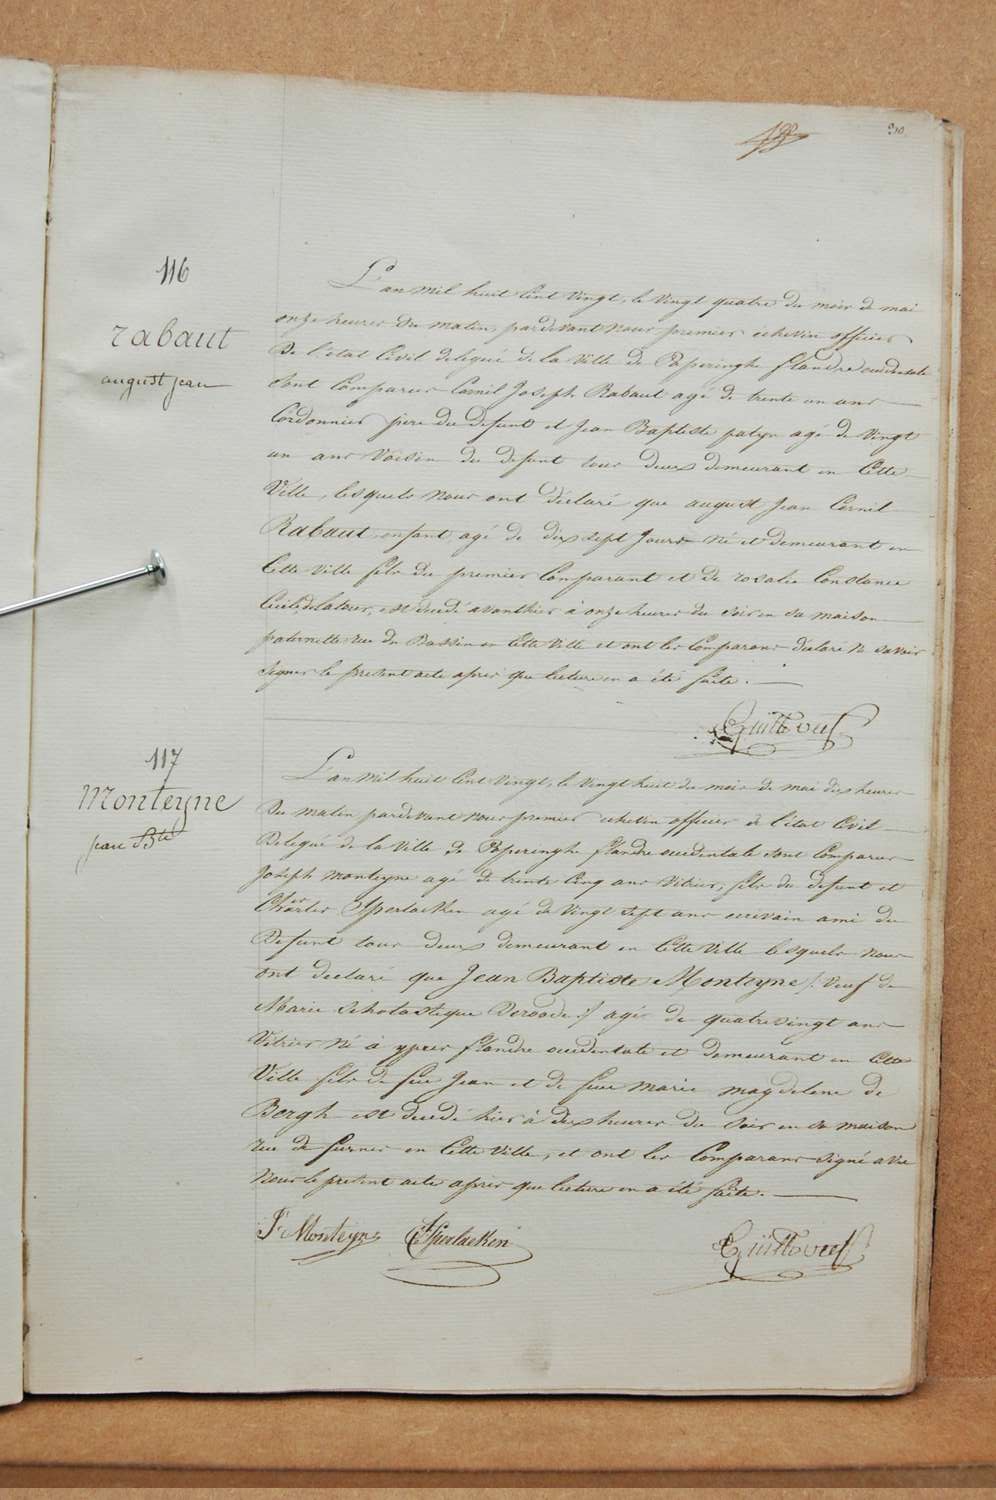 116
Rabaut
august jean
L'an mil huit Cent Vingt, le Vingt quatre du mois de mai
onze heures du matin, pardevant nous premier echevin officier
De l'état Civil delegué de la Ville de Poperinghe flandre occidentale
Sont Comparus Cornil Joseph Rabaut agé de trente un ans
Cordonnier pere du defunt et Jean Baptiste patyn agé de Vingt
un ans Voisin du defunt tous deux demeurant en Cette
Ville, lesquels nous ont déclaré que august Jean Cornil
Rabaut enfant agé de dix sept Jours né et demeurant en
Cette Ville fils du premier Comparant et de rosalie Constance
est décedé avanthier à onze heures du Soir en sa maison
paternelle rue du Bassin en Cette Ville et ont les Comparans déclaré ne savoir
Signer le present acte après que lecture en a été faite.
117
Monteyne
jean Bte
L'an mil huit Cent Vingt, le Vingt huit du mois de mai dix heures
Du matin pardevant nous premier echevin officier de l'état Civil
Delegué de la Ville de Poperinghe flandre occidentale Sont Comparus
Joseph Monteyne agé de trente Cinq ans Vitrier, fils du defunt et
Charles Sperlaeken agé de Vingt Sept ans ecrivain ami du
Defunt tous deux demeurant en Cette Ville lesquels nous
ont declaré que Jean Baptiste Monteyne /: Veuf de
Marie Scholastique :/ agé de quatrevingt ans
Vitrier Né à ypres flandre occidentale et demeurant en Cette
Ville fils de feu Jean et de feue Marie magdelene de
Bergh est decedé hier à dix heures du Soir en sa maison
rue de furnes en Cette Ville, et ont les Comparans Signé avec
Nous le present acte après que lecture en a été faite.
J. Monteyne Ch Sperlaeken